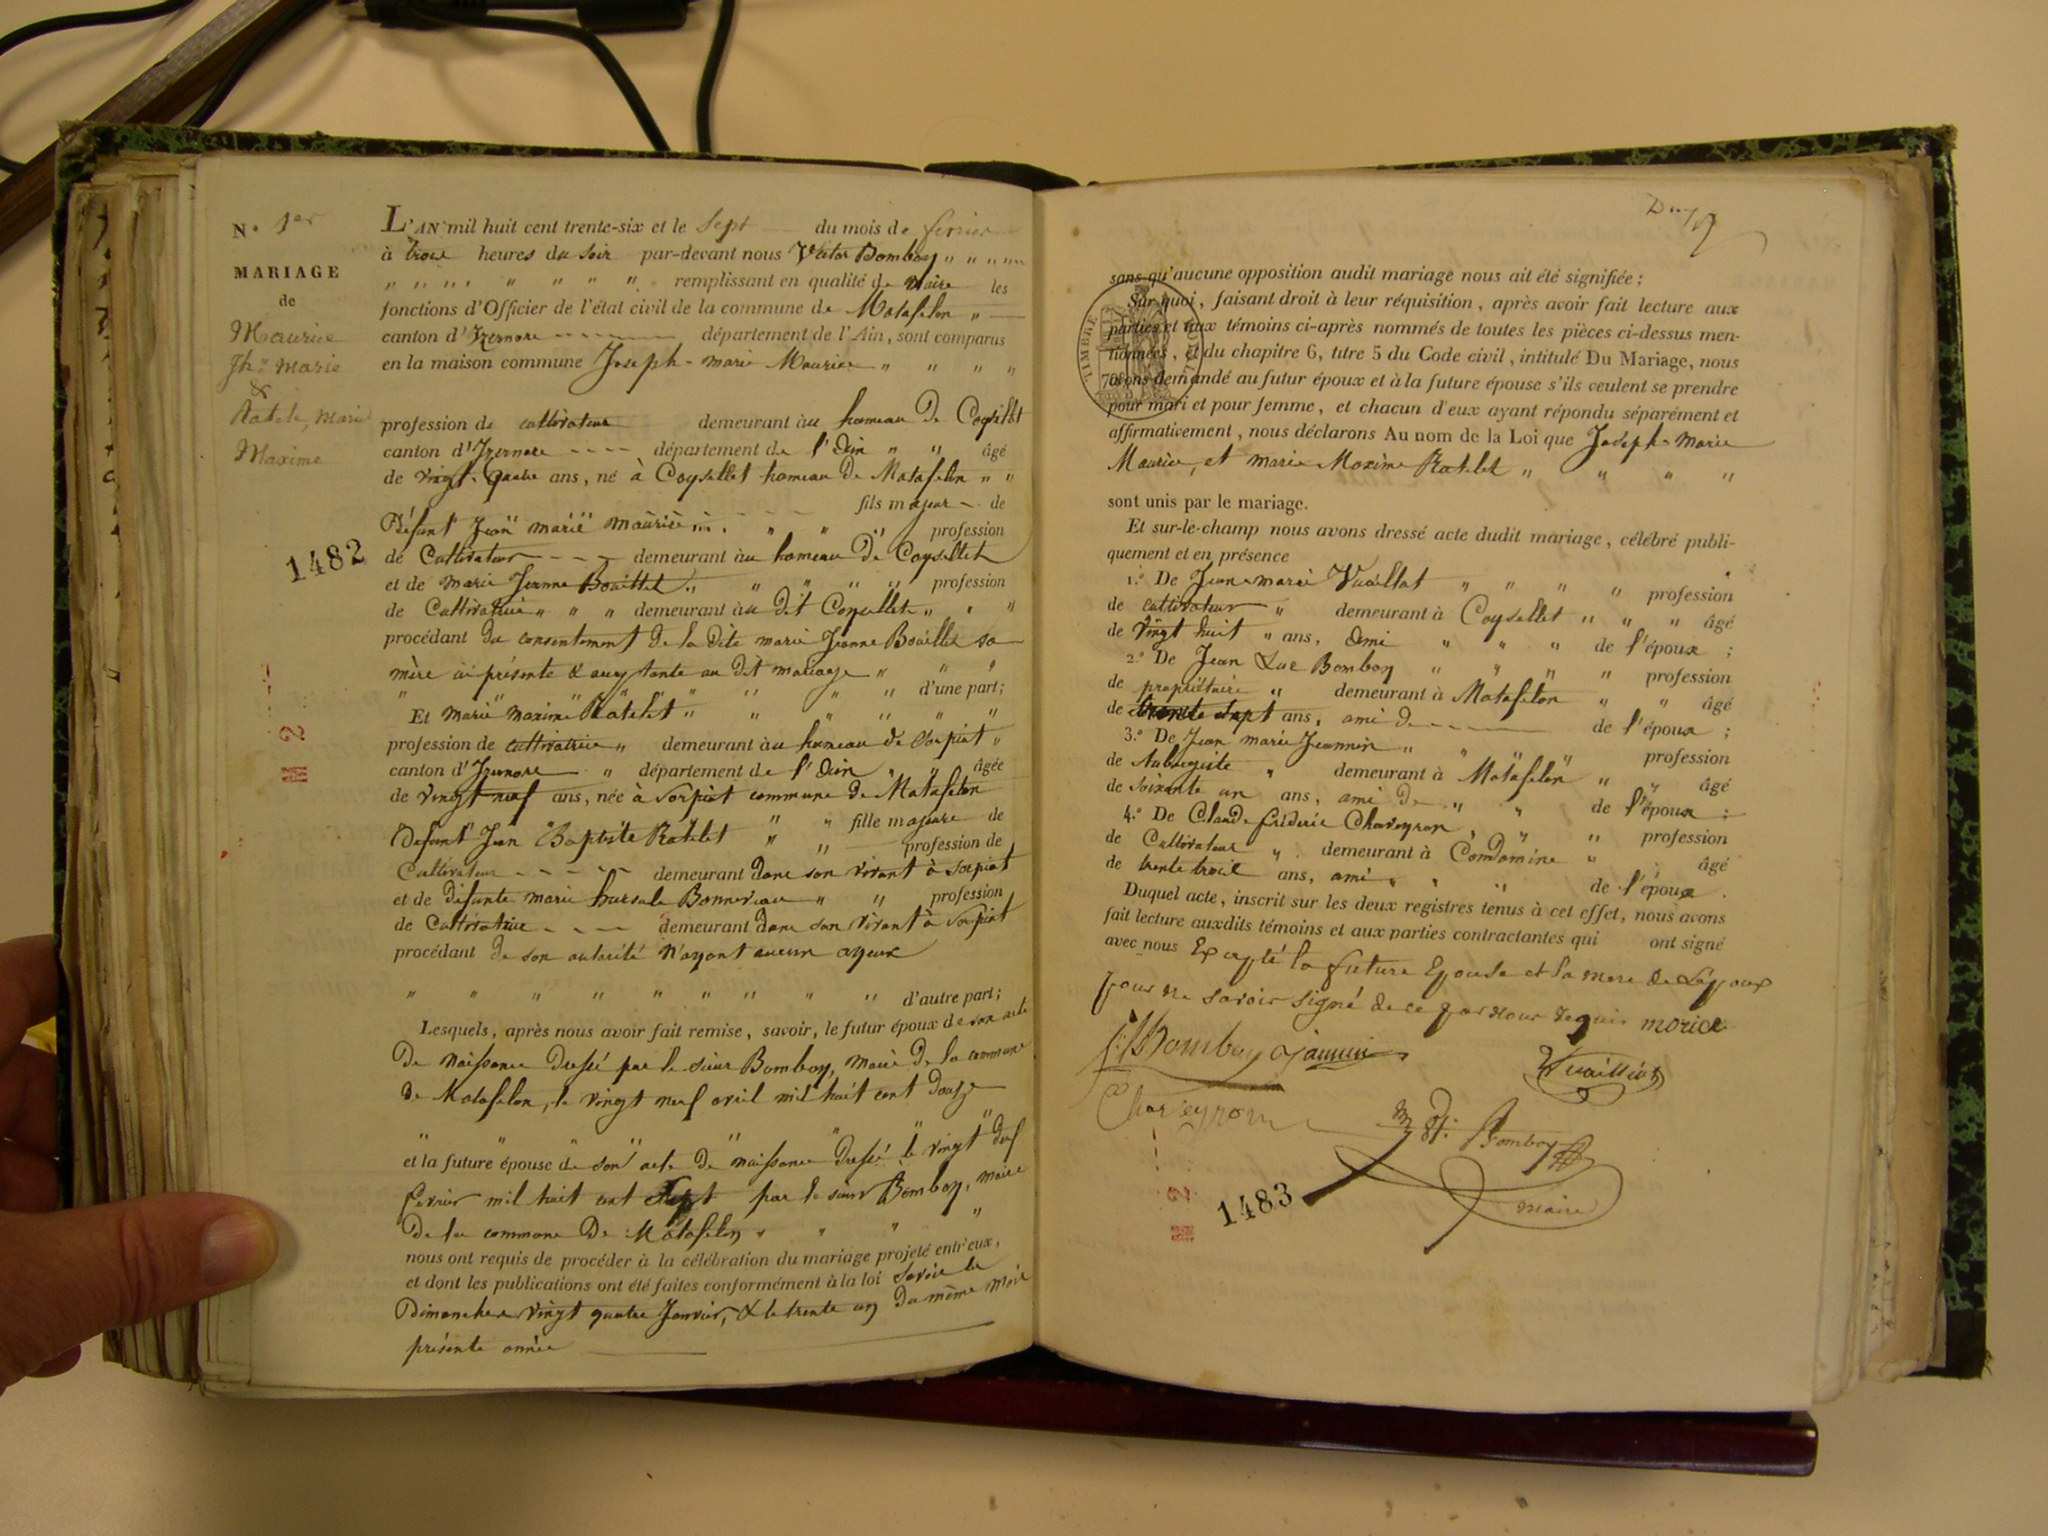 N.° 1er
MARIAGE
de
Maurice
Jh. Marie
&
Ratelet, Marie
Maxime
1482
L'AN mil huit cent trente-six et le Sept du mois de fevrier
à trois heures du soir par-devant nous Victor Bomboy
remplissant en qualité de Maire les
fonctions d'Officier de l'état civil de la commune de Matafelon
canton d'Izernore département de l'Ain, sont comparus
en la maison commune Joseph-marie Maurice
profession de cultivateur demeurant au hameau de Coysellet
canton d'Izernore département de l'Ain âgé
de vingt-quatre ans, né à Coysellet hameau de Matafelon
fils majeur de
Défunt Jean marie maurice profession
de Cultivateur demeurant au hameau de Coysellet
et de marie Jeanne Bouillet profession
de Cultivatrice demeurant au dit Coysellet
procédant du consentement de la dite marie Jeanne Bouillet sa
mère ici présente & acceptante au dit mariage
d'une part;
Et marie maxime Ratelet
profession de cultivatrice demeurant au hameau de Sorpiat
canton d'Izernore département de l'Ain âgée
de vingt neuf ans, née à Sorpiat commune de Matafelon
fille majeure de
Defunt Jean Baptiste Ratelet profession de
Cultivateur demeurant dans son vivant à Sorpiat
et de défunte marie hursule Bonneviau profession
de Cultivatrice demeurant dans son vivant à Sorpiat
procédant de son autorité n'ayant aucun ayeux
d'autre part;
Lesquels, après nous avoir fait remise, savoir, le futur époux de son acte
De naissance dressé par le sieur Bomboy, maire de la commune
de Matafelon, le vingt neuf avril mil huit cent douze
et la future épouse de son acte de naissance dressé le vingt deux
fevrier mil huit cent Sept par le sieur Bomboy, maire
De la commune De Matafelon
nous ont requis de procéder à la célébration du mariage projeté entr'eux,
et dont les publications ont été faites conformément à la loi Savoir les
Dimanches vingt quatre Janvier, & le trente un du même mois
présente année
sans qu'aucune opposition audit mariage nous ait été signifiée;
Sur quoi, faisant droit à leur réquisition, après avoir fait lecture aux
parties et aux témoins ci-après nommés de toutes les pièces ci-dessus men-
tionnées, et du chapitre 6, titre 5 du Code civil, intitulé Du Mariage, nous
avons demandé au futur époux et à la future épouse s'ils veulent se prendre
pour mari et pour femme, et chacun d'eux ayant répondu séparément et
affirmativement, nous déclarons Au nom de la Loi que Joseph-Marie
Maurice, et marie Maxime Ratelet
sont unis par le mariage.
Et sur-le-champ nous avons dressé acte dudit mariage, célébré publi-
quement et en présence
1.° De Jean-marie Vuaillat profession
de cultivateur demeurant à Coysellet âgé
de vingt huit ans, ami de l'époux;
2.° De Jean Luc Bomboy profession
de propriétaire demeurant à Matafelon âgé
de trente sept ans, ami de de l'époux;
3.° De Jean marie Jeannin profession
de Aubergiste demeurant à Matafelon âgé
de soixante un ans, ami de de l'époux;
4.° De Claude fréderic Charveyron profession
de Cultivateur demeurant à Condamine âgé
de trente trois ans, ami de l'époux.
Duquel acte, inscrit sur les deux registres tenus à cet effet, nous avons
fait lecture auxdits témoins et aux parties contractantes qui ont signé
avec nous Excepté la future Epouse et la mere de L'époux
pour ne savoir signé de ce par nous requis morice
Bomboy Jannin
Vuaillat
Charveyron
Bomboy
maire
1483
TIMBRE